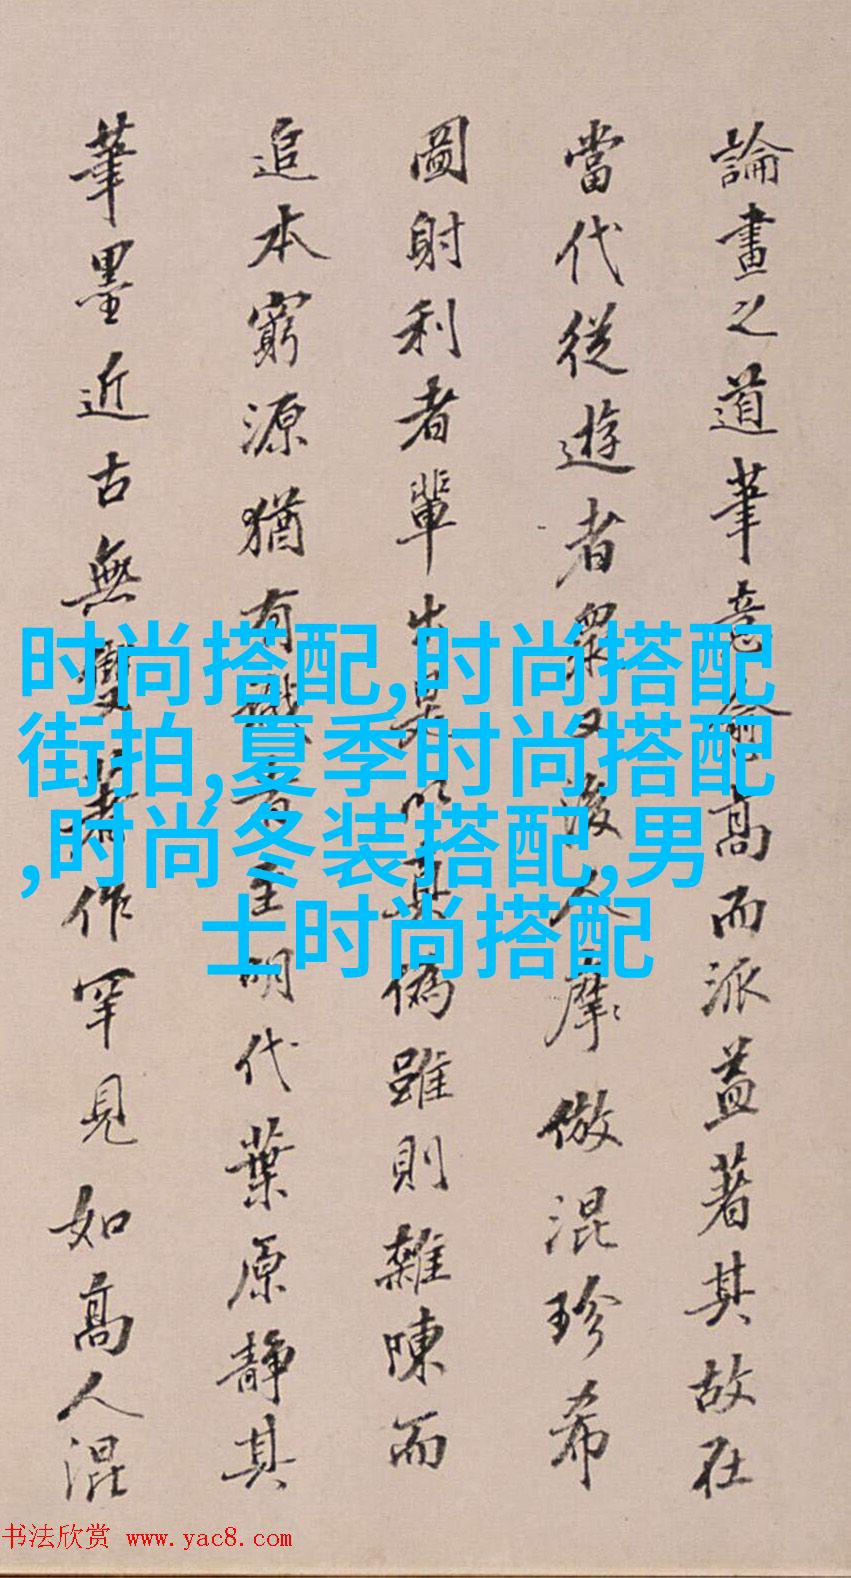 論畫之道筆意愈高而派益著其故在
當代從遊者眾又後人摩倣混珍希
圖射利者輩出是以真偽雖則雜陳而
追本窮源猶有主明代葉原靜其
筆墨近古無變著作罕見如高人混
时尚搭配,时尚搭配
街拍,夏季时尚搭配
,时尚冬装搭配,男
士时尚搭配
书法欣赏 www.yac8.com